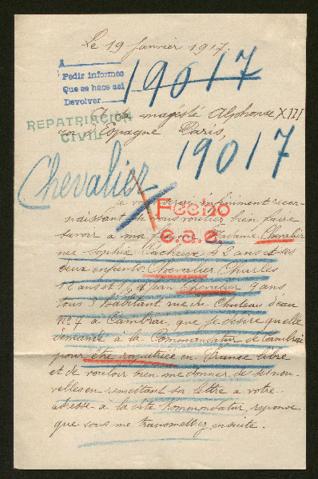 Le 19 Janvier 1917.
A
Pedir informes
Que se hace así
Devolver
19017
A sa majesté Alphonse XIII
roi d'Espagne Paris,
REPATRIACION
CIVIL
19017
Chevalier
Je vous serai infiniment recon-
naissant de vouloir bien faire
Fecho
savoir à ma femme Madame Chevalier
e.a.e.
née Sophie 43 ans et ses
deux enfants Chevalier Charles
ans et Jean Chevalier 9 ans
tous 3 habitant rue du Chateau d'eau
No 7 à Cambrai, que je désire qu'elle
demande à la Commandatur de Cambrai
pour être rapatriée en France libre
et de vouloir bien me donner de ses nou-
velles en remettant sa lettre à votre
adresse à la dite Kommandatur, réponse
que vous me transmettrez ensuite.